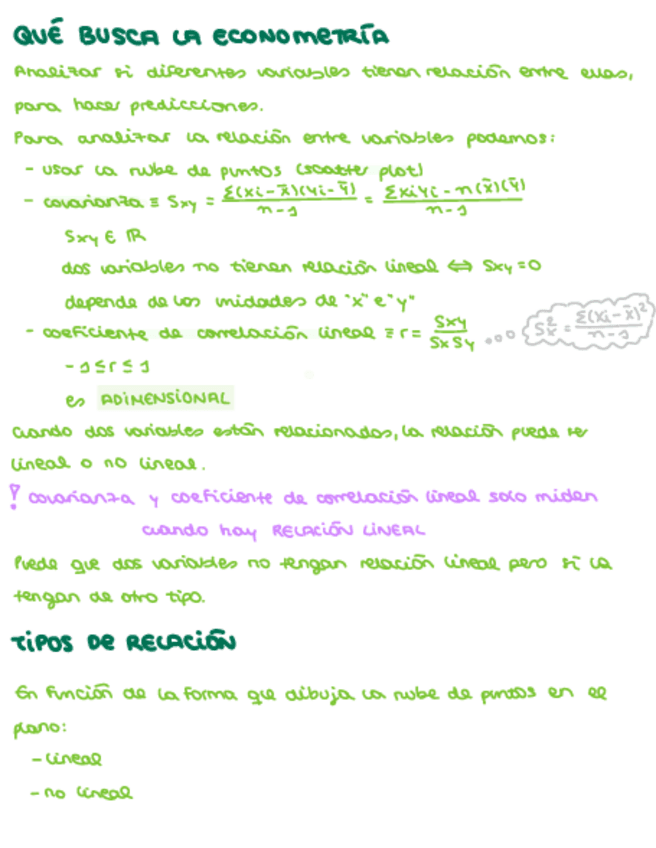 QUÉ BUSCA LA ECONOMETRÍA
Analizar si diferentes variables tienen relación entre ellas,
para hacer predicciones.
Para analizar la relación entre variables podemos:
- usar la nube de puntos (scatter plot)
- covarianza ≡ Sxy = Σ(xi - x̄)(yi - ȳ) / n-1 = Σxiyi - n(x̄)(ȳ) / n-1
Sxy ∈ ℝ
dos variables no tienen relación lineal ⇔ Sxy = 0
depende de las unidades de "x" e "y"
- coeficiente de correlación lineal ≡ r = Sxy / Sx Sy ... Sx² = Σ(xi - x̄)² / n-1
-1 ≤ r ≤ 1
es ADIMENSIONAL
Cuando dos variables están relacionadas, la relación puede ser
lineal o no lineal.
! covarianza y coeficiente de correlación lineal solo miden
cuando hay RELACIÓN LINEAL
Puede que dos variables no tengan relación lineal pero sí la
tengan de otro tipo.
TIPOS DE RELACIÓN
En función de la forma que dibuja la nube de puntos en el
plano:
- lineal
- no lineal